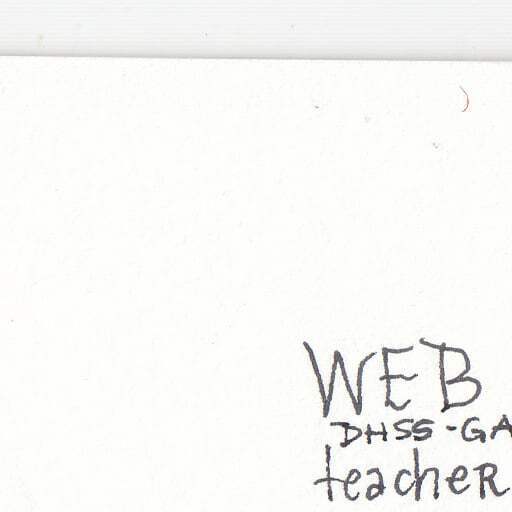 WEB
DHSS-GA
teacher